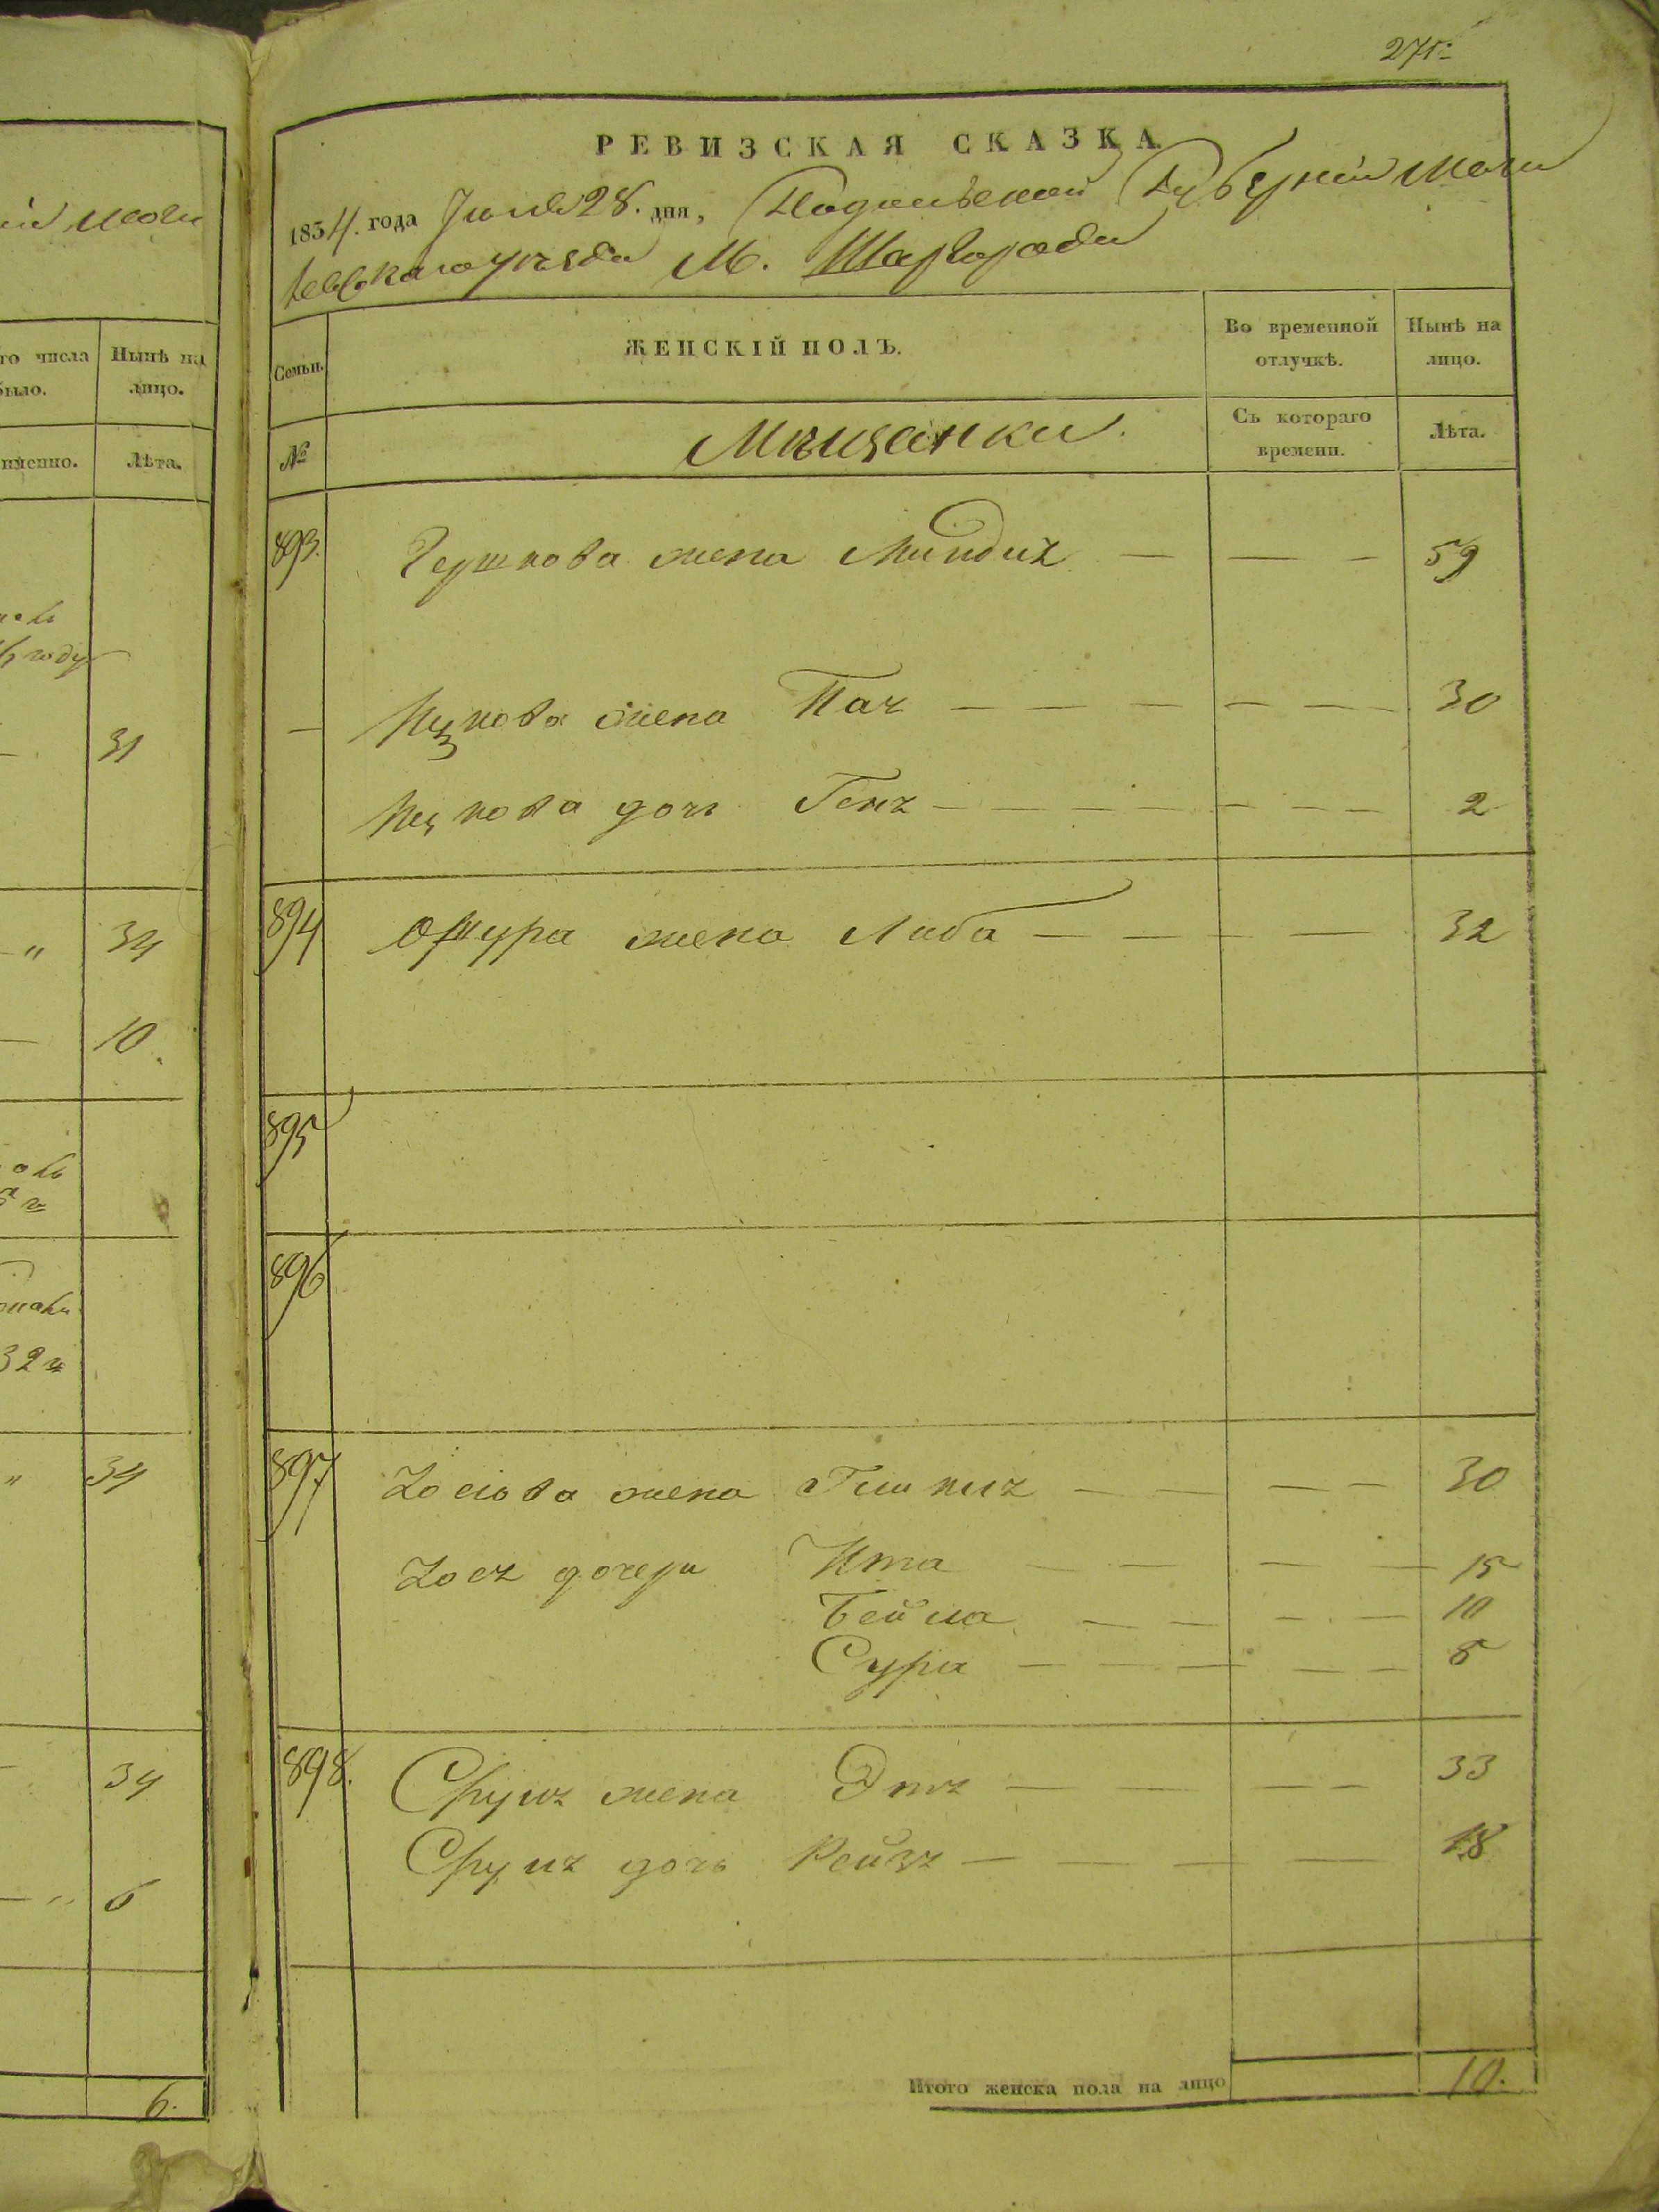 271
РЕВИЗСКАЯ СКАЗКА
1834. года Июня 28. дня, Подольской Губерніи Моги
левскаго уѣзда М. Шаргорода
Семьи. ЖЕНСКІЙ ПОЛЪ. Во временной отлучкѣ. Нынѣ на лицо.
№ Мѣщанки. Съ котораго времени. Лѣта.
893. Гершкова жена Миндих — — — 59
— Ицкова жена Пач — — — — — — 30
Ицкова дочь Гених — — — — — — — 2
894 жена Либа — — — — 32
895
896
897 Iосіова жена — — — — 30
Iося дочери Ита — — — — 15
Бейла — — — — 10
Сура — — — — — 8
898. Сруля жена Этя — — — — 33
Сруля дочь Рейзя — — — — 18
Итого женска пола на лицо 10.
ій Моги
го числа было. Нынѣ на лицо.
именно. Лѣта.
году
— 31
— " 34
— 10.
32 г
" 34
34
— " 6
6.